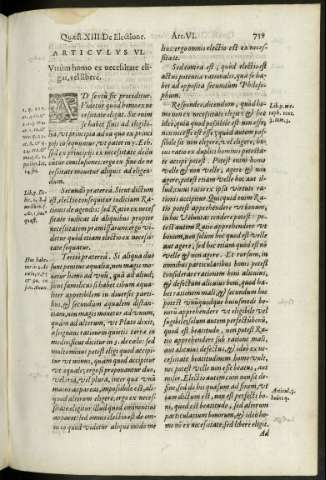 Quæst. XIII. De Electione. Art. VI. 739
ARTICVLVS VI.
Vtrum homo ex necessitate eli-
gat, vel liberè.
AD sextum sic proceditur.
Videtur quòd homo ex ne
cessitate eligat. Sic enim
se habet finis ad eligibi-
lia, vt principia ad ea quæ ex princi
pijs consequuntur, vt patet in 7. Ethi.
sed ex principijs ex necessitate dedu
cuntur conclusiones: ergo ex fine de ne
cessitate mouetur aliquis ad eligen-
dum.
Secundò præterea. Sicut dictum
est, electio consequitur iudicium Ra-
tionis de agendis: sed Ratio ex necessi-
tate iudicat de aliquibus propter
necessitatem præmissarum: ergo vi-
detur quòd etiam electio ex necessi-
tate sequatur.
Tertiò præterea. Si aliqua duo
sunt penitus æqualia, non magis mo-
uetur homo ad vnum, quàm ad aliud:
sicut famelicus si habet cibum æqua-
liter appetibilem in diuersis parti-
bus, & secundum æqualem distan-
tiam, non magis mouetur ad vnum,
quàm ad alterum, vt Plato dixit,
assignans rationem quietis terræ in
medio: sicut dicitur in 2. de cælo: sed
multò minus potest eligi quod accipi-
tur vt minus, quàm quod accipitur
vt æquale: ergo si proponantur duo,
vel tria, vel plura, inter quæ vnum
maius appareat, impossibile est, ali-
quod aliorum eligere: ergo ex neces-
sitate eligitur illud quod eminentius
apparet: sed omnis electio est de om-
ni eo quod videtur aliquo modo me
lius: ergo omnis electio est ex neces-
sitate.
Sed contra est, quòd electio est
actus potentiæ rationalis, quæ se ha-
bet ad opposita secundum Philoso-
phum.
Respondeo dicendum, quòd ho-
mo non ex necessitate eligit: & hoc
ideo quia quod possibile est non esse,
non necesse est esse: quòd autem possi-
bile sit non eligere, vel eligere, hu-
ius ratio ex duplici hominis potesta-
te accipi potest. Potest enim homo
velle & non velle, agere & non
agere, potest etiam velle hoc aut il-
lud: cuius ratio ex ipsa virtute ra-
tionis accipitur. Quicquid enim Ra-
tio potest apprehendere vt bonum,
in hoc Voluntas tendere potest: po-
test autem Ratio apprehendere vt
bonum, non solùm hoc quod est velle
aut agere, sed hoc etiam quod est non
velle & non agere. Et rursum, in
omnibus particularibus bonis potest
considerare rationem boni alicuius,
& defectum alicuius boni, quod ha-
bet rationem mali, & secundum hoc
potest vnumquodque huiusmodi bo-
norum apprehendere vt eligibile vel
fugibile: solum autem perfectum bonum
quod est beatitudo, non potest Ra-
tio apprehendere sub ratione mali,
aut alicuius defectus, & ideo ex ne-
cessitate beatitudinem homo vult,
nec potest velle non esse beatus, aut
miser. Electio autem cum non sit de
fine sed de his quæ sunt ad finem, vt
iam dictum est, non est perfecti bo-
ni, quod est beatitudo, sed aliorum
particularium bonorum, & ideo ho-
mo non ex necessitate, sed liberè eligit.
Ad